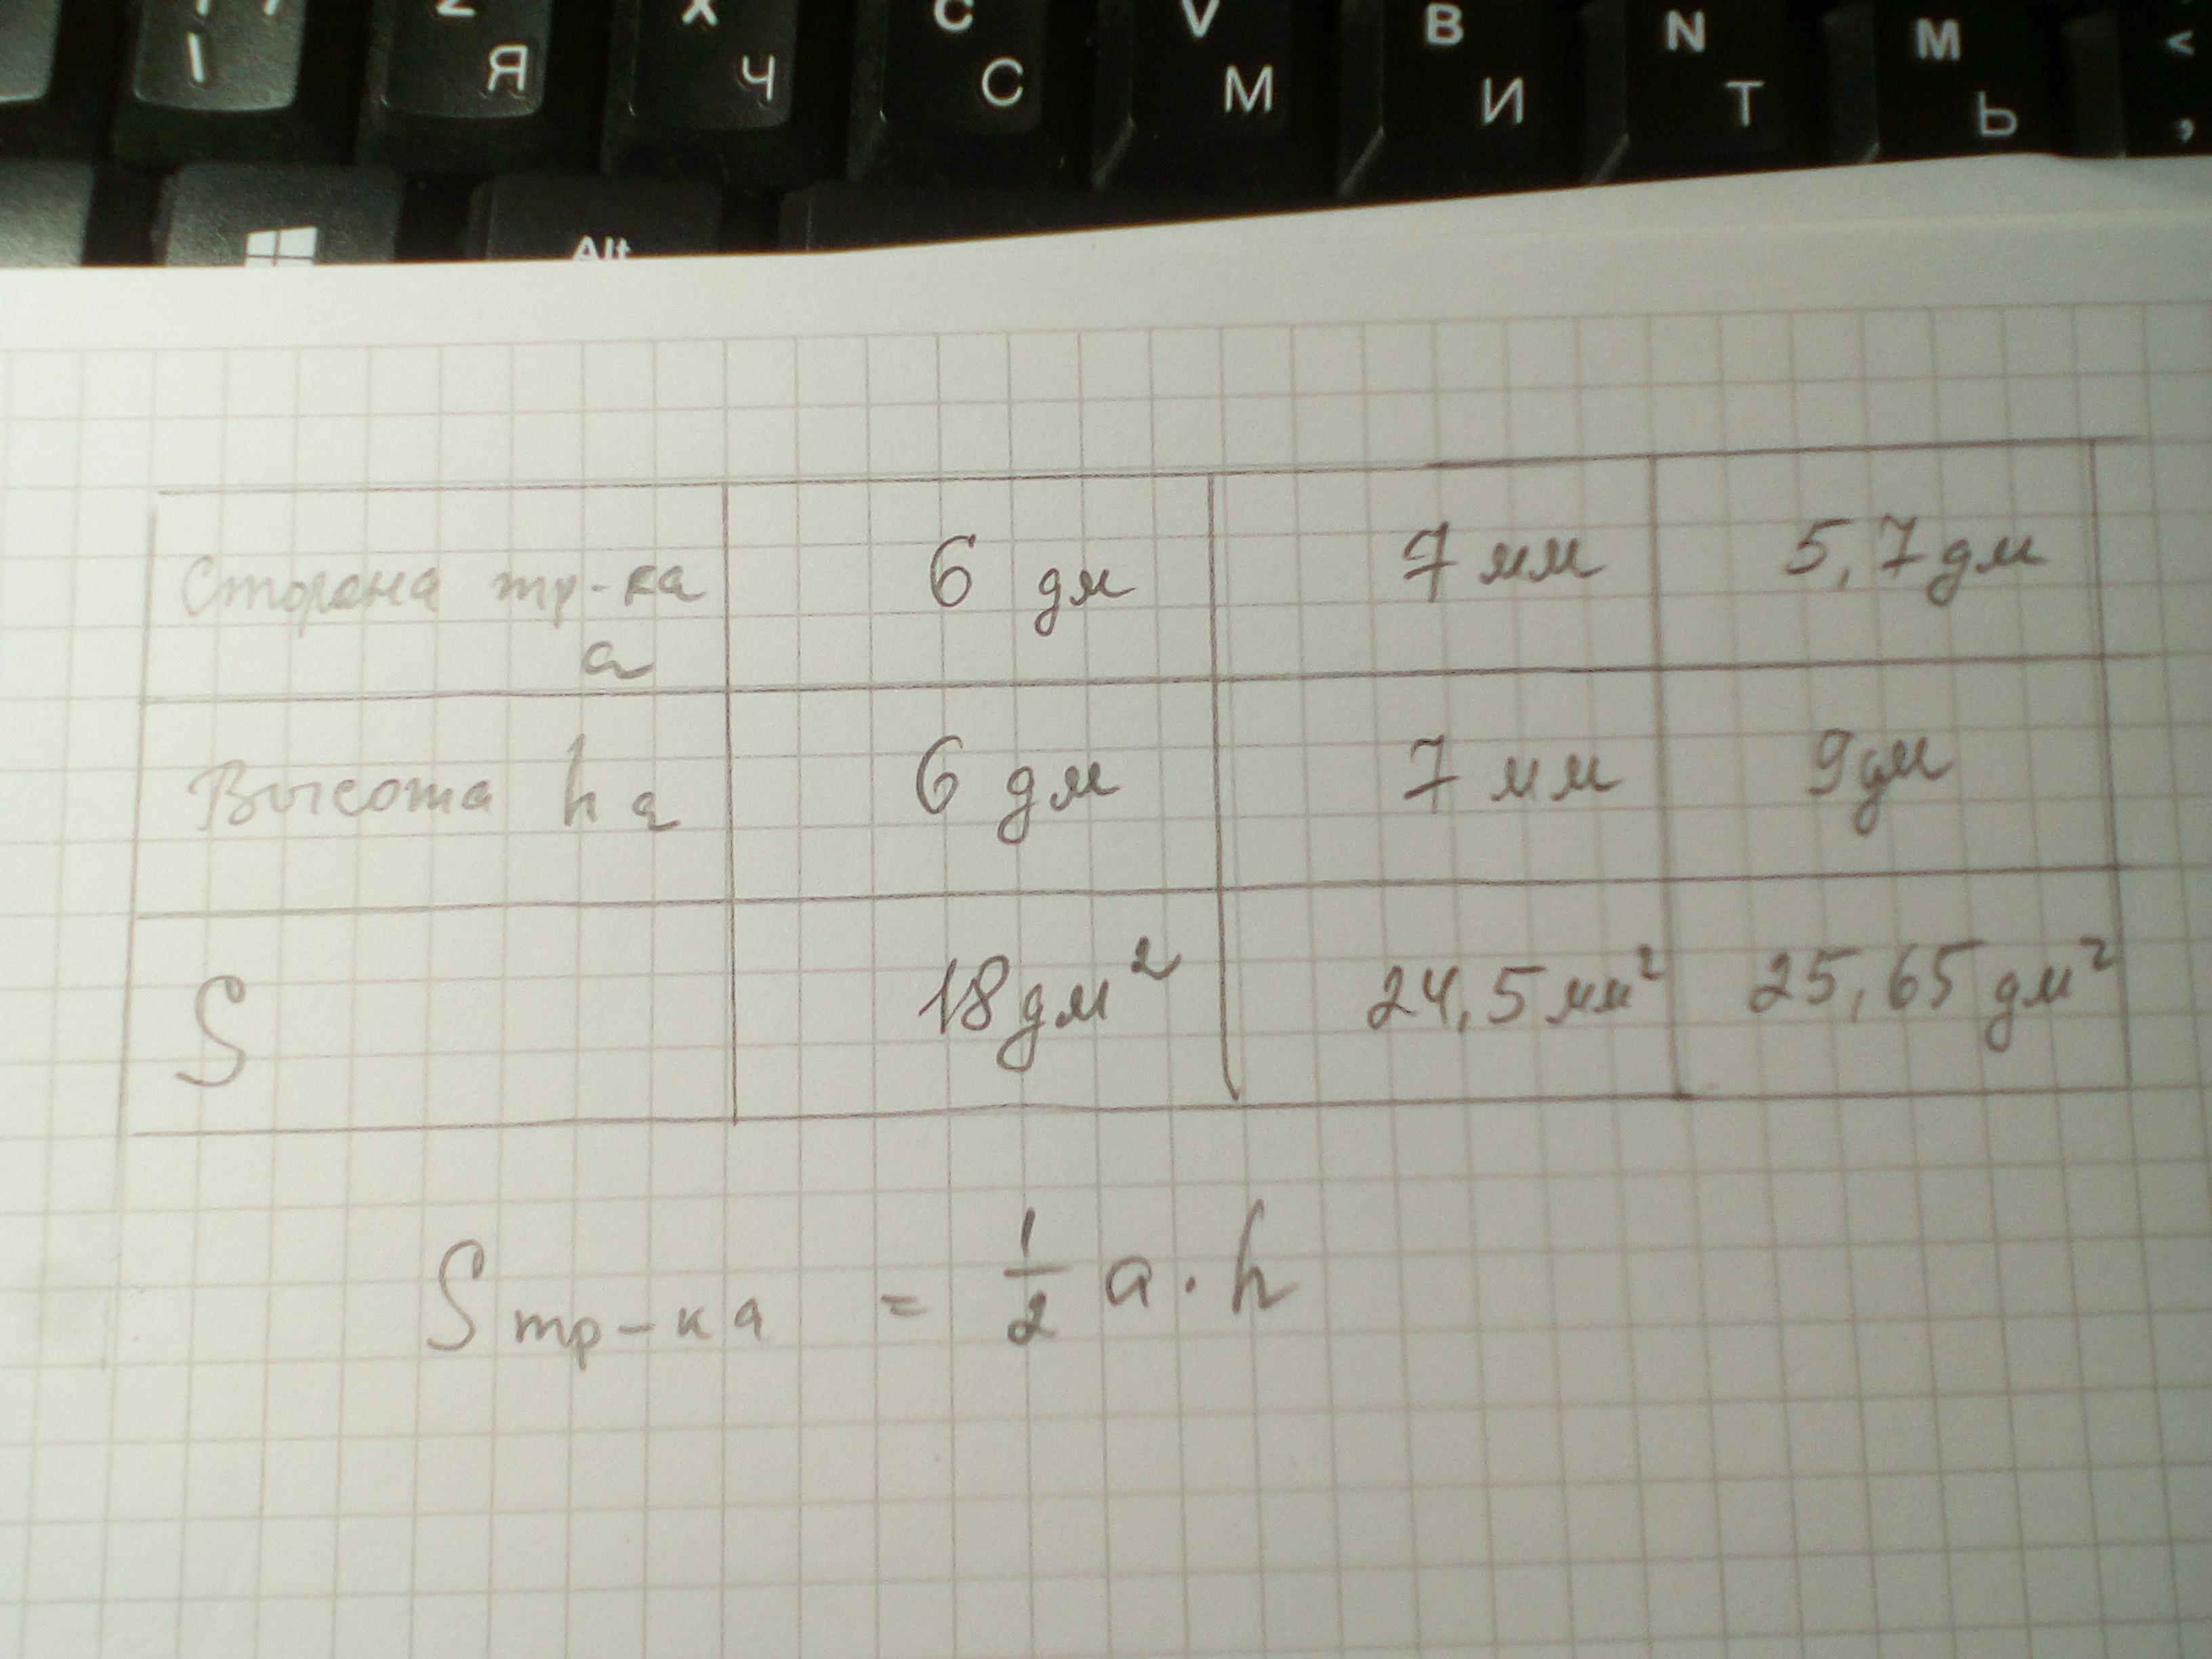 Z X C V B N M <
Я Ч С М И Т Ь ,
Alt
Сторона тр-ка 6 дм 7 мм 5,7 дм
a
Высота ha 6 дм 7 мм 9 дм
S 18 дм² 24,5 мм² 25,65 дм²
S тр-ка = 1/2 a · h